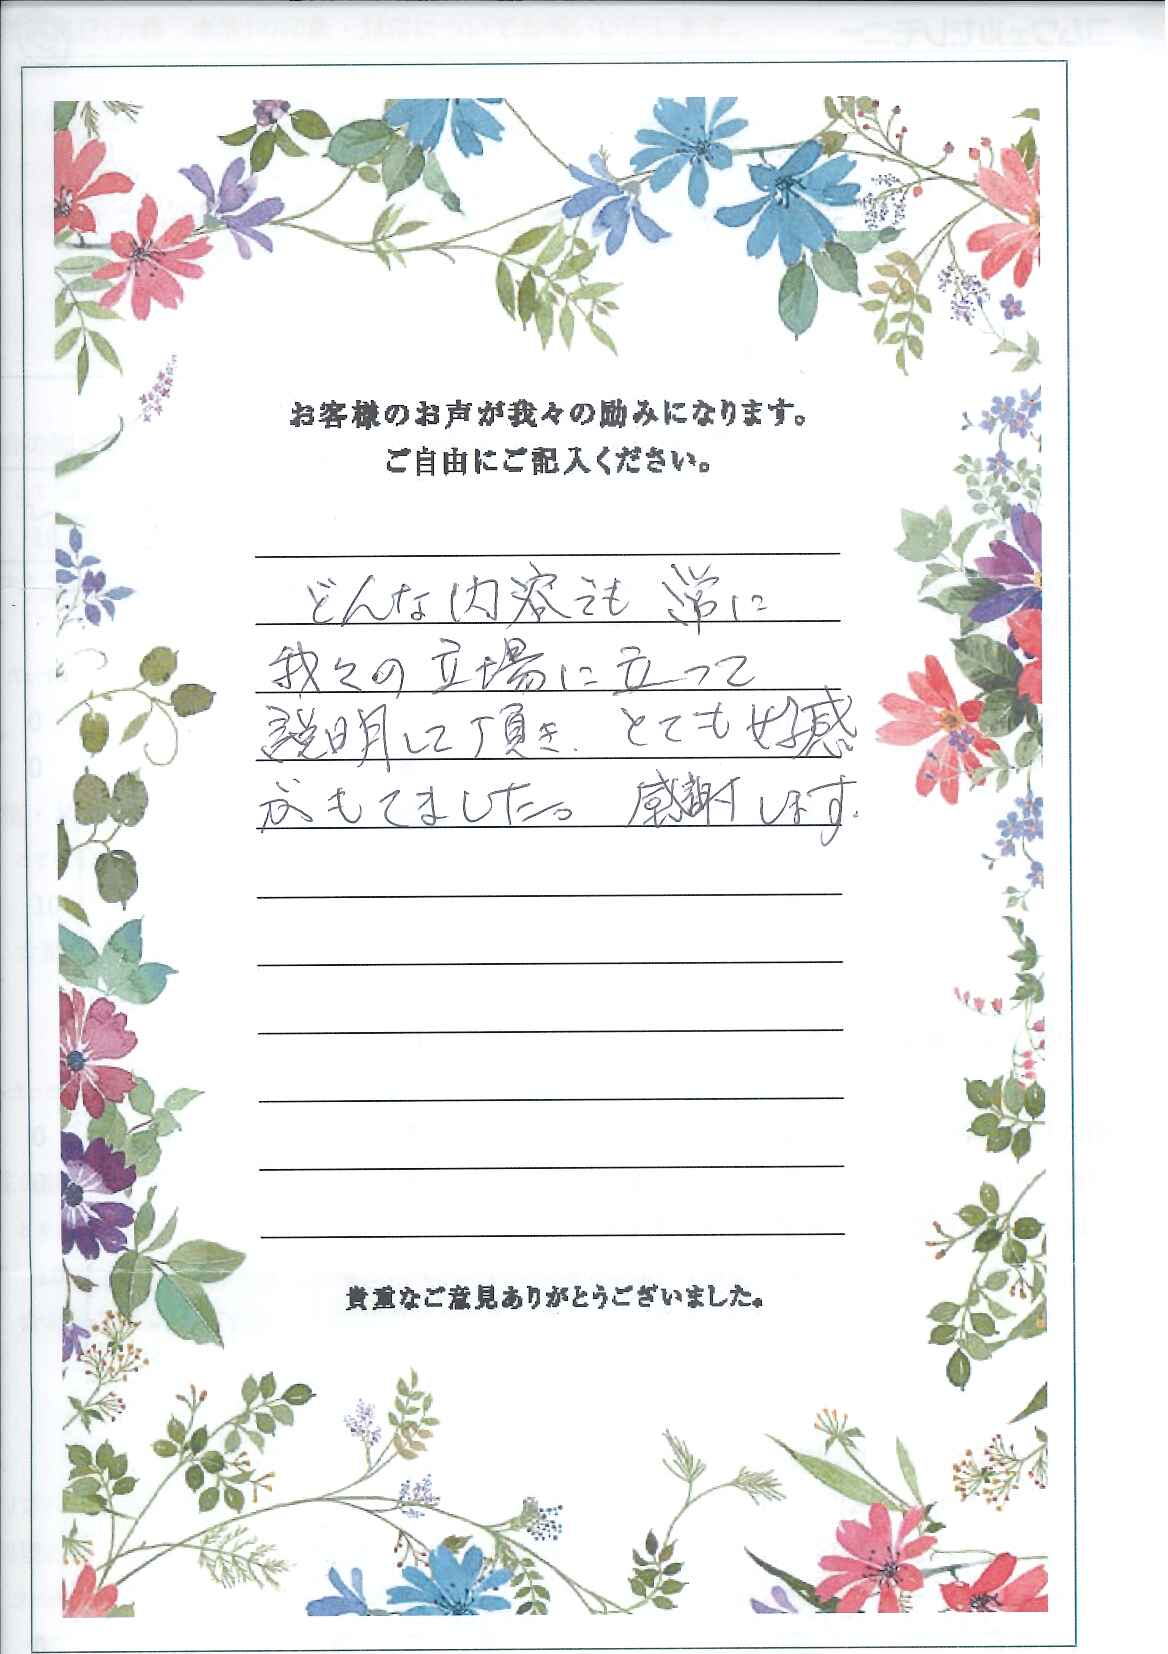 お客様のお声が我々の励みになります。
ご自由にご記入ください。
どんな内容でも 常に
我々の立場に立って
説明して頂き、とても好感
がもてました。感謝します。
貴重なご意見ありがとうございました。